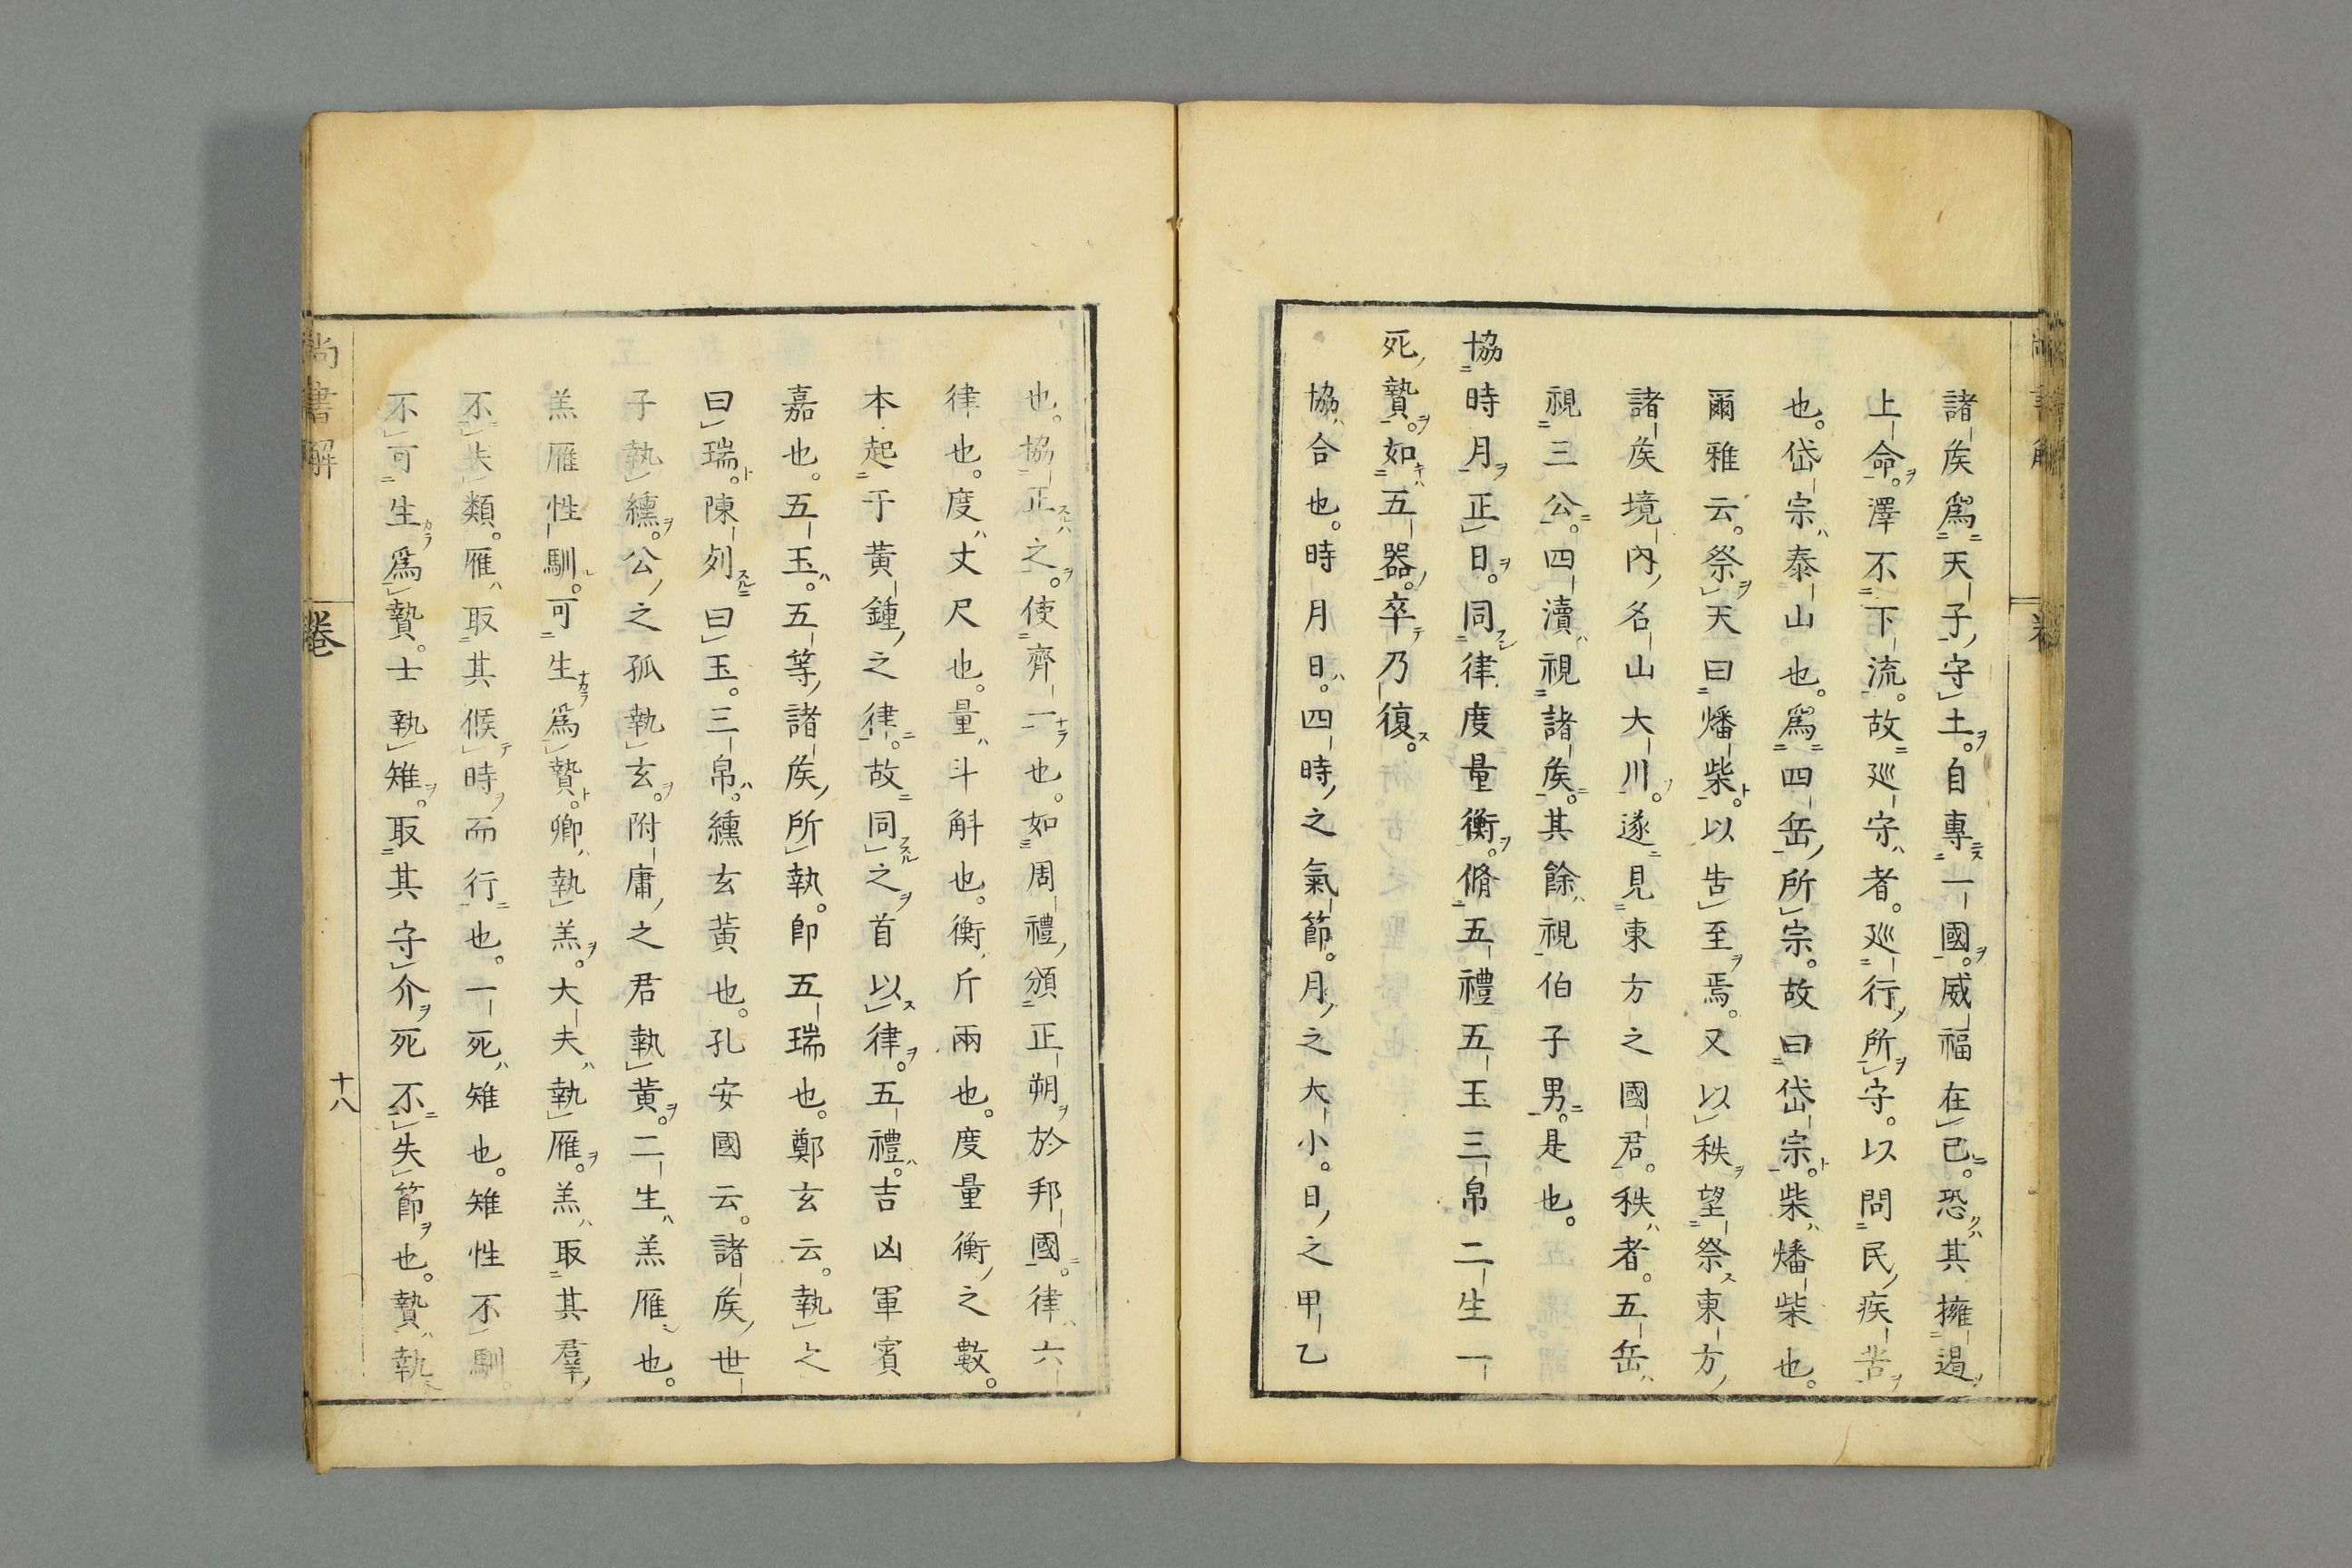 諸矦爲天子守土。自專一國。威福在己。恐其擁遏
上命。澤不下流。故廵守者。廵行所守。以問民疾苦
也。岱宗泰山也。爲四岳所宗。故曰岱宗。柴燔柴也。
爾雅云。祭天曰燔柴。以告至焉。又以秩望祭東方
諸矦境內名山大川。遂見東方之國君。秩者。五岳
視三公。四瀆視諸矦。其餘視伯子男。是也。
協時月正日。同律度量衡。脩五禮五玉三帛二生一
死贄。如五器。卒乃復。
協合也。時月日。四時之氣節。月之大小。日之甲乙
也。協正之。使齊一也。如周禮頒正朔於邦國。律六
律也。度丈尺也。量斗斛也。衡斤兩也。度量衡之數。
本起于黃鍾之律。故同之首以律。五禮。吉凶軍賓
嘉也。五玉。五等諸矦所執。卽五瑞也。鄭玄云。執之
曰瑞。陳列曰玉。三帛。纁玄黃也。孔安國云。諸矦世
子執纁。公之孤執玄。附庸之君執黃。二生羔雁也。
羔雁性馴。可生爲贄。卿執羔。大夫執雁。羔取其羣
不失類。雁取其候時而行也。一死雉也。雉性不馴。
不可生爲贄。士執雉。取其守介死不失節也。贄執
尚書解
卷
十八